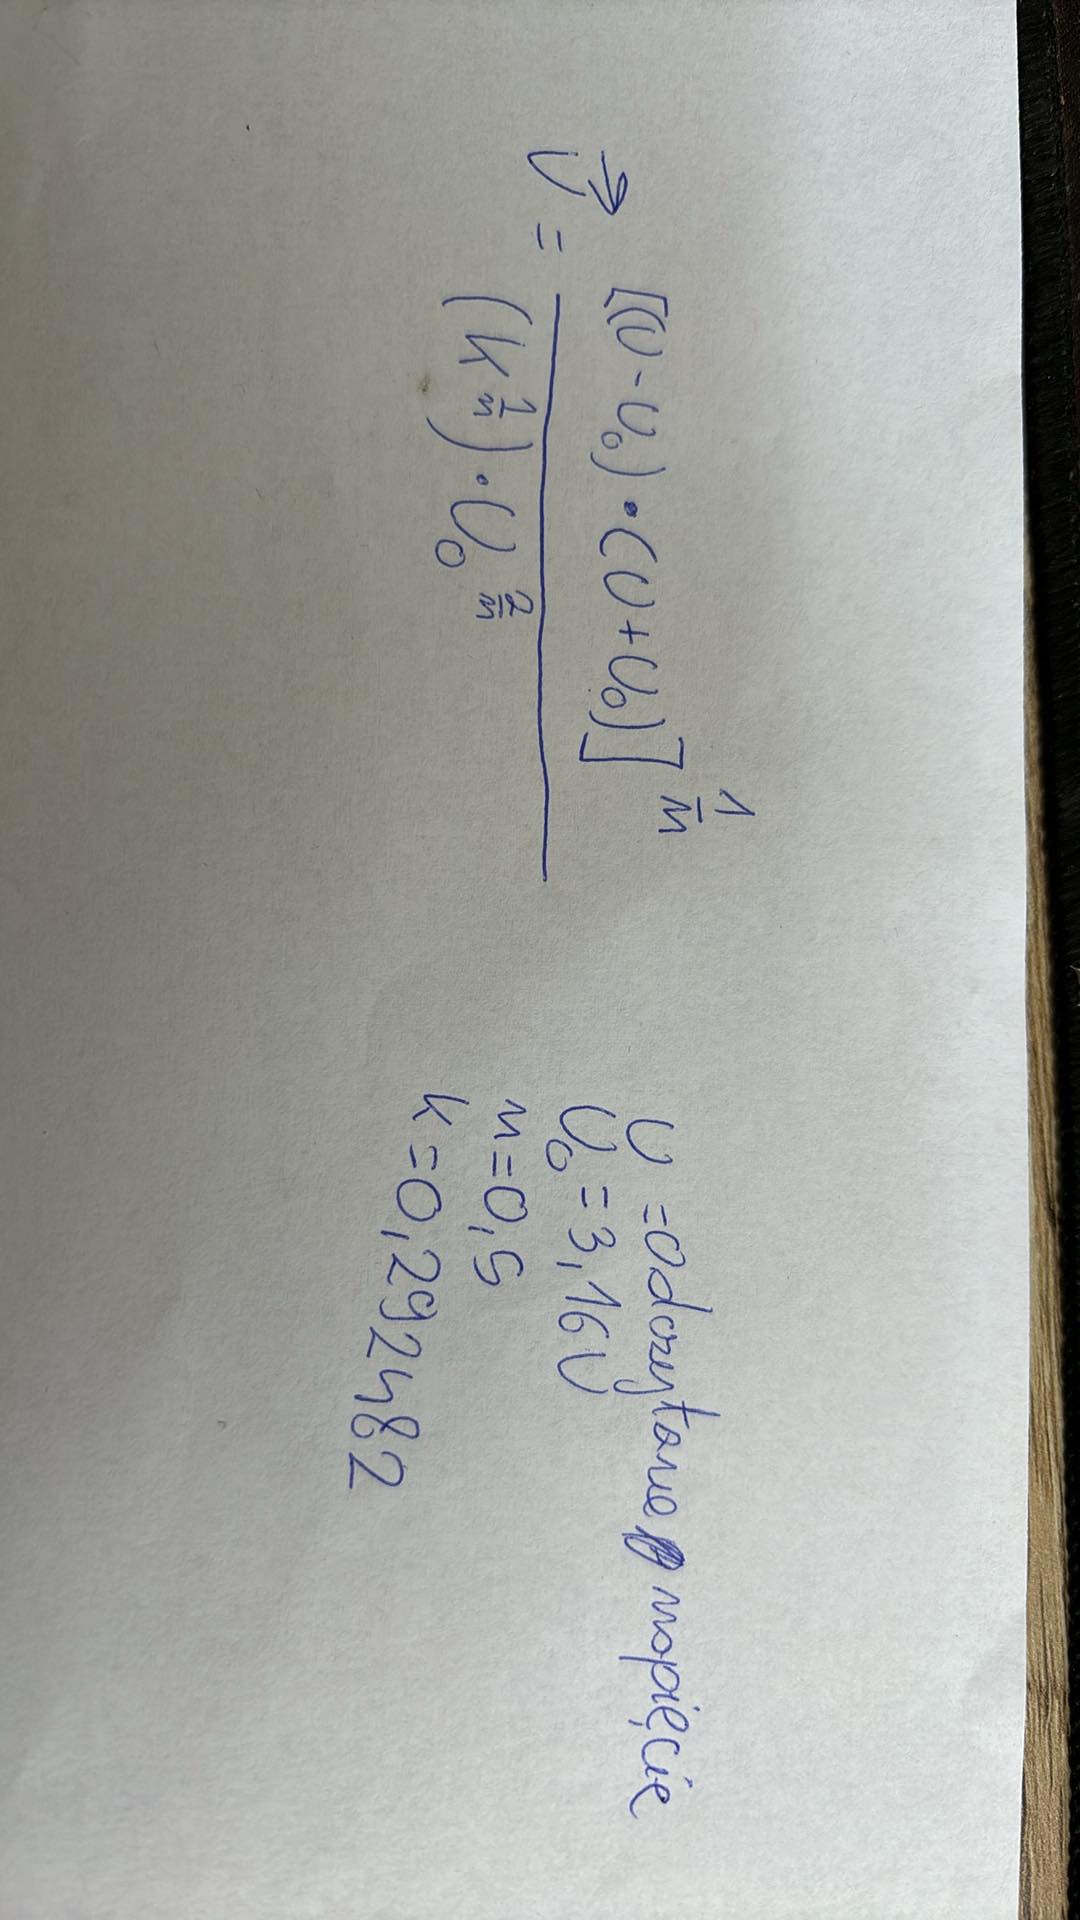 U⃗ = [(U - U₀) • (U + U₀)]^(1/n) / (k^(1/n)) • U₀^(2/n)
U = odczytane napięcie
U₀ = 3,16V
n = 0,5
k = 0,292482